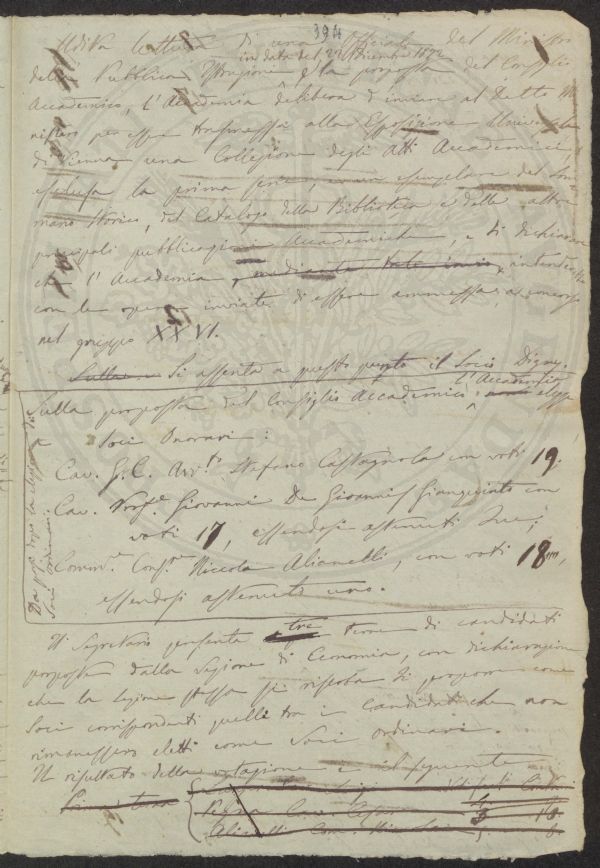 394
Udita lettura di una Officiale del Ministro
in data del 22 dicembre 1872
della Pubblica Istruzione e la proposta del Consiglio
Accademico, l'Accademia delibera d'inviare al Detto Mi
nistero per essere trasmessa alla Esposizione Universale
di Vienna una Collezione degli Atti Accademici,
esclusa la prima serie, un esemplare del Som
mario Storico, del Catalogo della Biblioteca e delle altre
principali pubblicazioni Accademiche, e di dichiarare
che l'Accademia, mediante tale invio, intende
con le opere inviate di essere ammessa a concorso
nel gruppo XXVI.
Si assenta a questo punto il Socio
Sulla proposta del Consiglio Accademico l'Accademia elegge
a Soci Onorari:
Cav. G. C. Avv.to Stefano Castagnola con voti 19.
Cav. Prof.e Giovanni De Gioannis Gianquinto con
voti 17, essendosi astenuti due;
Comm.e Cons.re Niccola Alianelli, con voti 18,
essendosi astenuto uno.
Da porsi dopo la elezione dei
Soci ordinari.
Il Segretario presenta tre terne di candidati
proposte dalla Sezione di Economia, con dichiarazione
che la Sezione stessa si riserba di proporre come
Soci corrispondenti quelli tra i candidati che non
rimanessero eletti come Soci ordinari.
Il risultato della votazione è il seguente